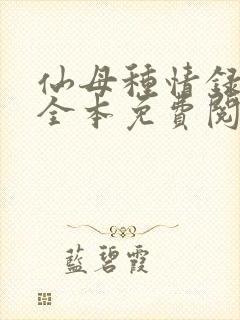 仙母種情録
全本免費閱
藍碧霞